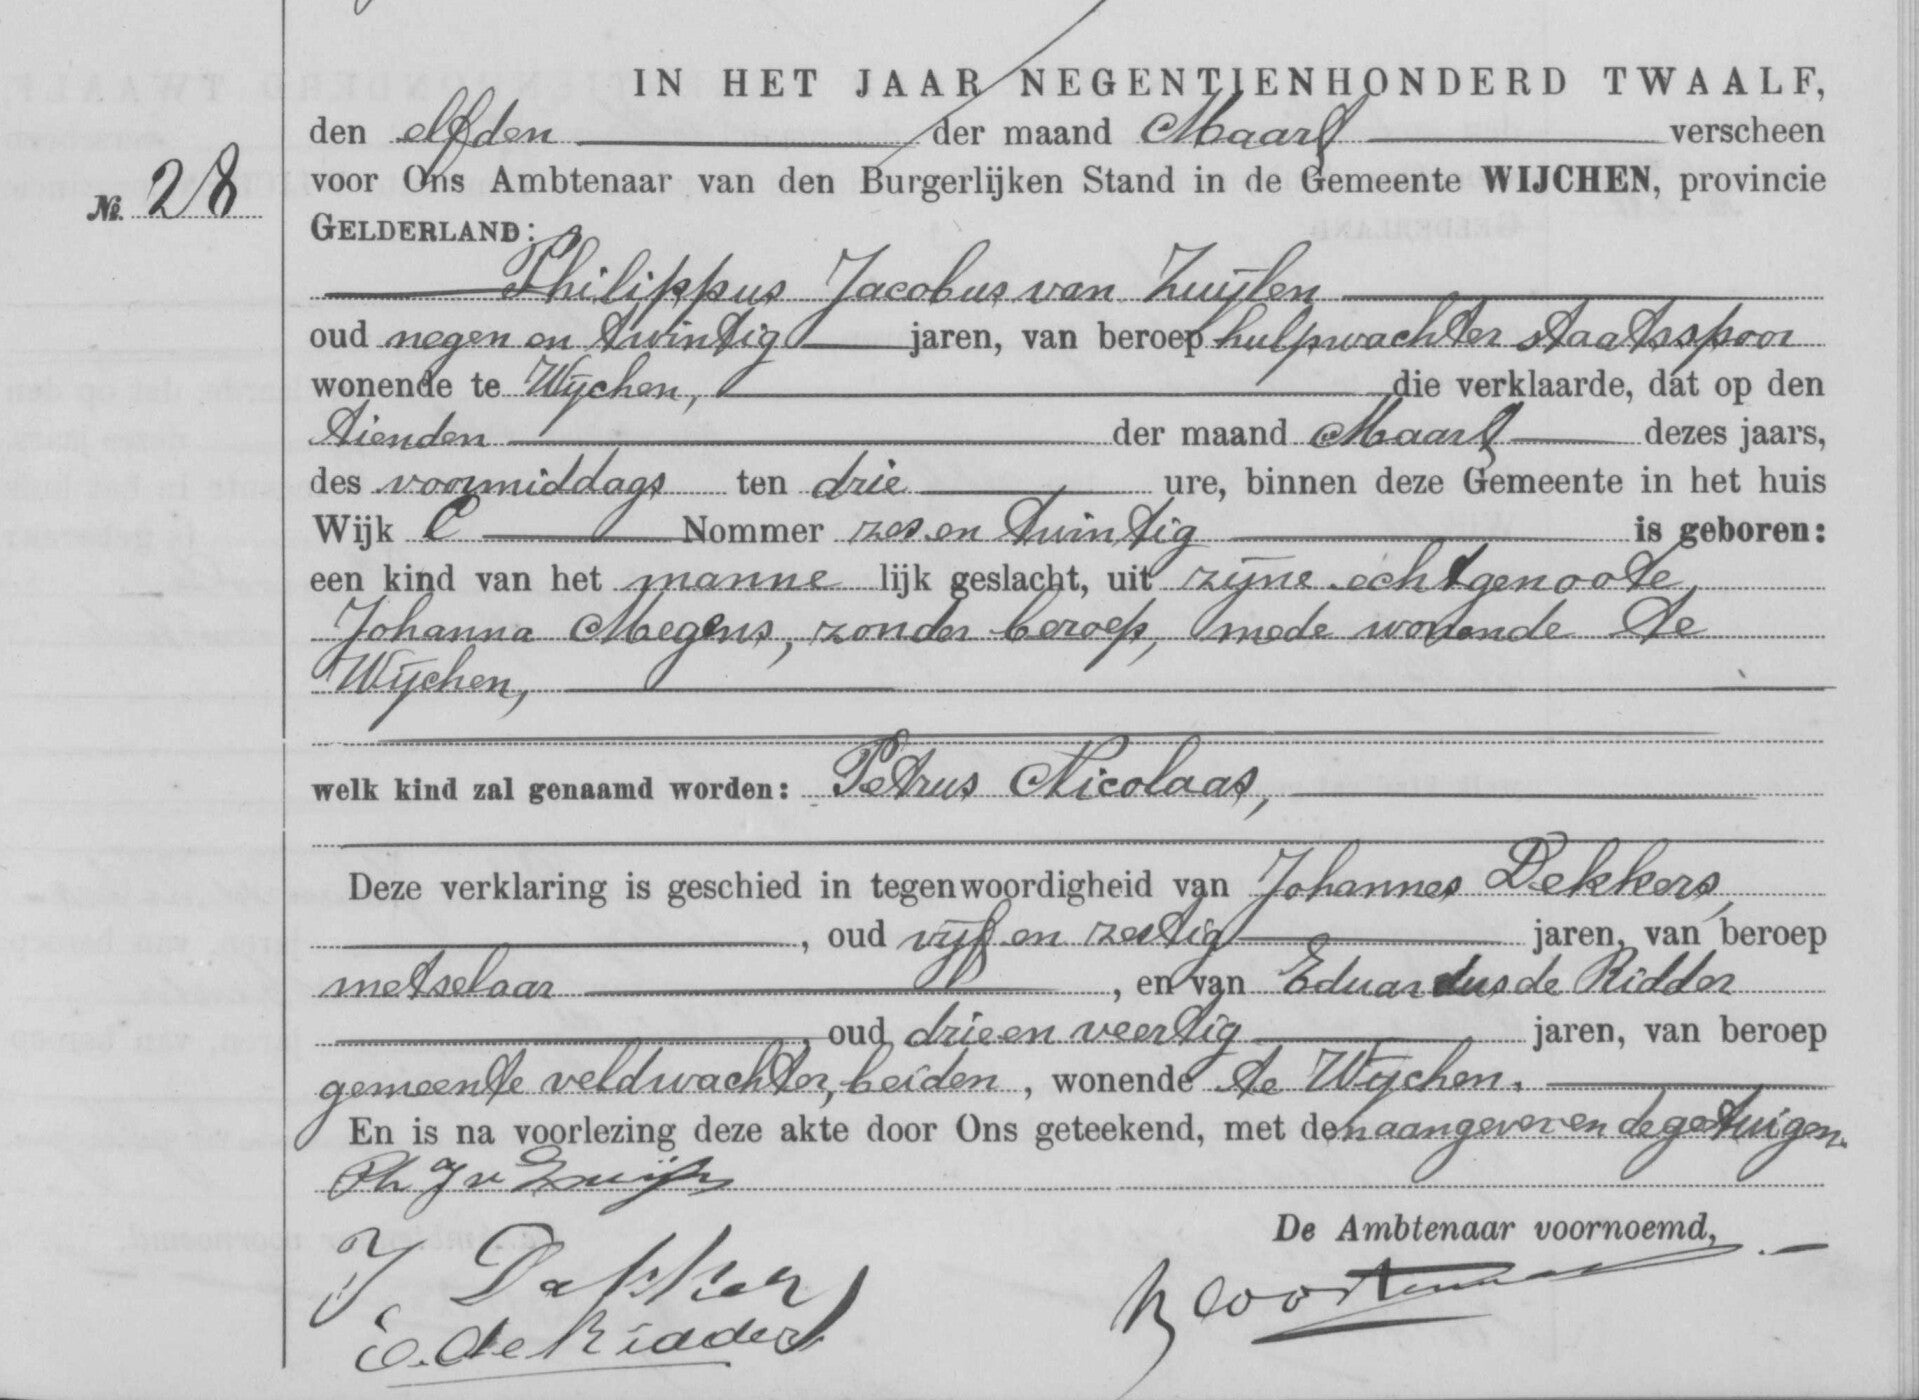 IN HET JAAR NEGENTIENHONDERD TWAALF,
den elfden der maand Maart verscheen
voor Ons Ambtenaar van den Burgerlijken Stand in de Gemeente WIJCHEN, provincie
№ 28
GELDERLAND:
Philippus Jacobus van Zuijlen
oud negen en twintig jaren, van beroep hulpwachter staatsspoor
wonende te Wijchen, die verklaarde, dat op den
tienden der maand Maart dezes jaars,
des voormiddags ten drie ure, binnen deze Gemeente in het huis
Wijk C Nommer zes en twintig is geboren:
een kind van het manne lijk geslacht, uit zijne echtgenoote
Johanna Megens, zonder beroep, mede wonende te
Wijchen,
welk kind zal genaamd worden: Petrus Nicolaas,
Deze verklaring is geschied in tegenwoordigheid van Johannes Dekkers,
, oud vijf en zestig jaren, van beroep
metselaar , en van Eduardus de Ridder
, oud drie en veertig jaren, van beroep
gemeente veldwachter, beiden , wonende te Wijchen.
En is na voorlezing deze akte door Ons geteekend, met den aangever en de getuigen.
Ph J v Zuijlen
De Ambtenaar voornoemd,
J Dekkers
E. de Ridder